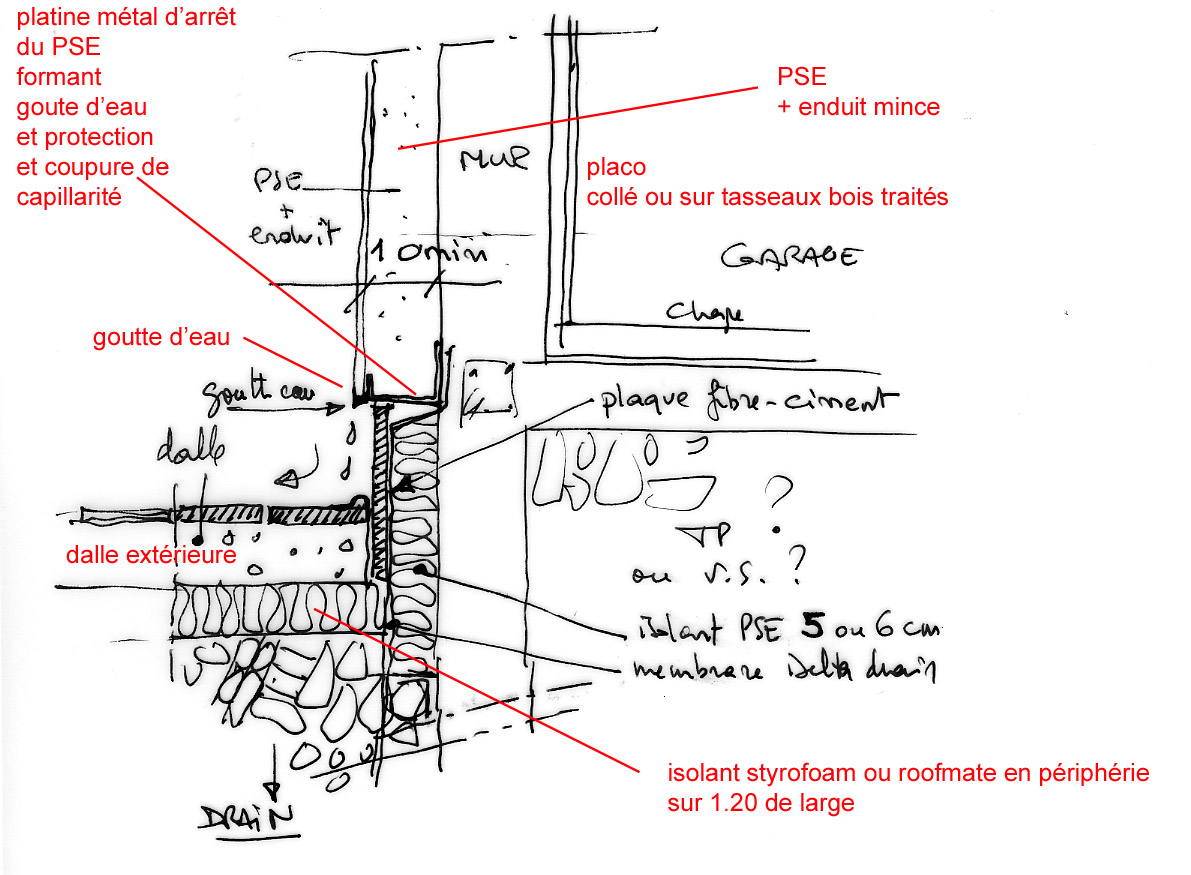 platine métal d'arrêt
du PSE
formant
goute d'eau
et protection
et coupure de
capillarité
PSE
+ enduit mince
placo
collé ou sur tasseaux bois traités
MUR
PSE
+
enduit
10 min
GARAGE
chape
goutte d'eau
goutt eau
plaque fibre-ciment
dalle
dalle extérieure
?
TP
ou V.S. ?
isolant PSE 5 ou 6 cm
membrane Delta drain
isolant styrofoam ou roofmate en périphérie
sur 1.20 de large
DRAIN